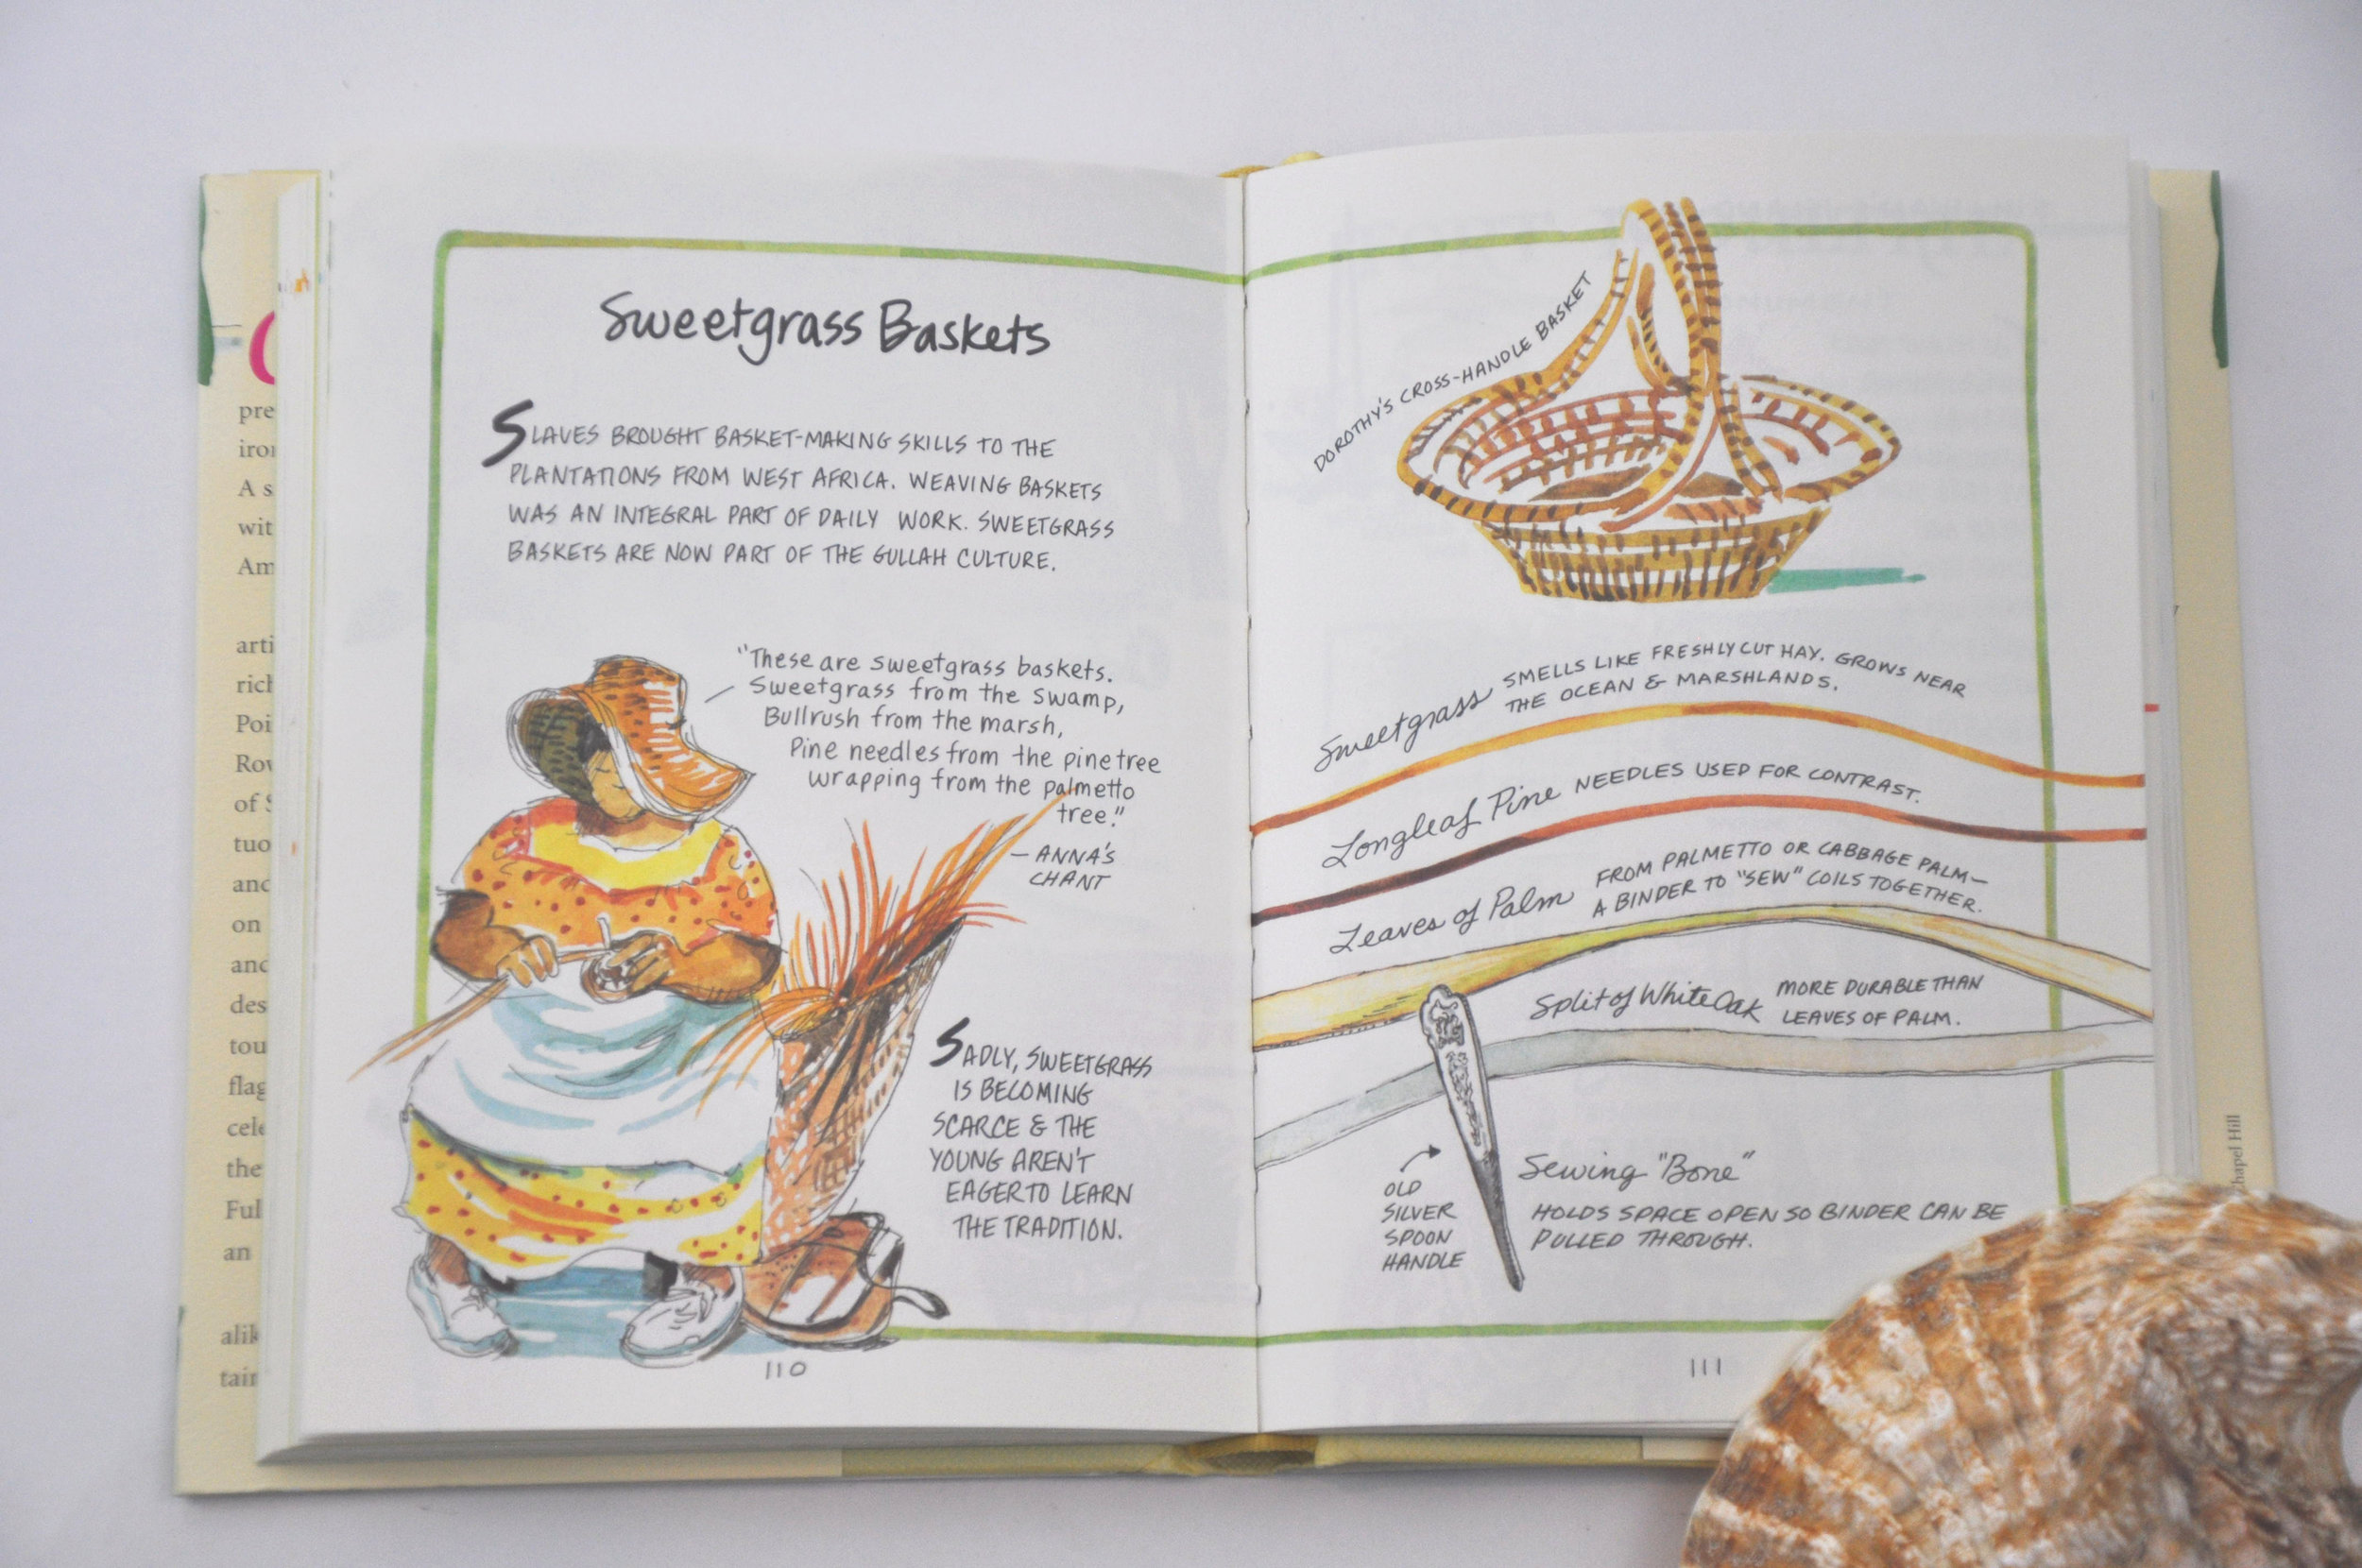 Sweetgrass Baskets
SLAVES BROUGHT BASKET-MAKING SKILLS TO THE
PLANTATIONS FROM WEST AFRICA. WEAVING BASKETS
WAS AN INTEGRAL PART OF DAILY WORK. SWEETGRASS
BASKETS ARE NOW PART OF THE GULLAH CULTURE.
"These are sweetgrass baskets.
Sweetgrass from the swamp,
Bullrush from the marsh,
Pine needles from the pine tree
wrapping from the palmetto
tree."
— ANNA'S
CHANT
SADLY, SWEETGRASS
IS BECOMING
SCARCE & THE
YOUNG AREN'T
EAGER TO LEARN
THE TRADITION.
110
DOROTHY'S CROSS-HANDLE BASKET
Sweetgrass SMELLS LIKE FRESHLY CUT HAY. GROWS NEAR
THE OCEAN & MARSHLANDS.
Longleaf Pine NEEDLES USED FOR CONTRAST.
Leaves of Palm FROM PALMETTO OR CABBAGE PALM—
A BINDER TO "SEW" COILS TOGETHER.
Split of White Oak MORE DURABLE THAN
LEAVES OF PALM.
OLD
SILVER
SPOON
HANDLE
Sewing "Bone"
HOLDS SPACE OPEN SO BINDER CAN BE
PULLED THROUGH.
111
A
with
of
and
on
and
the
an
Hill